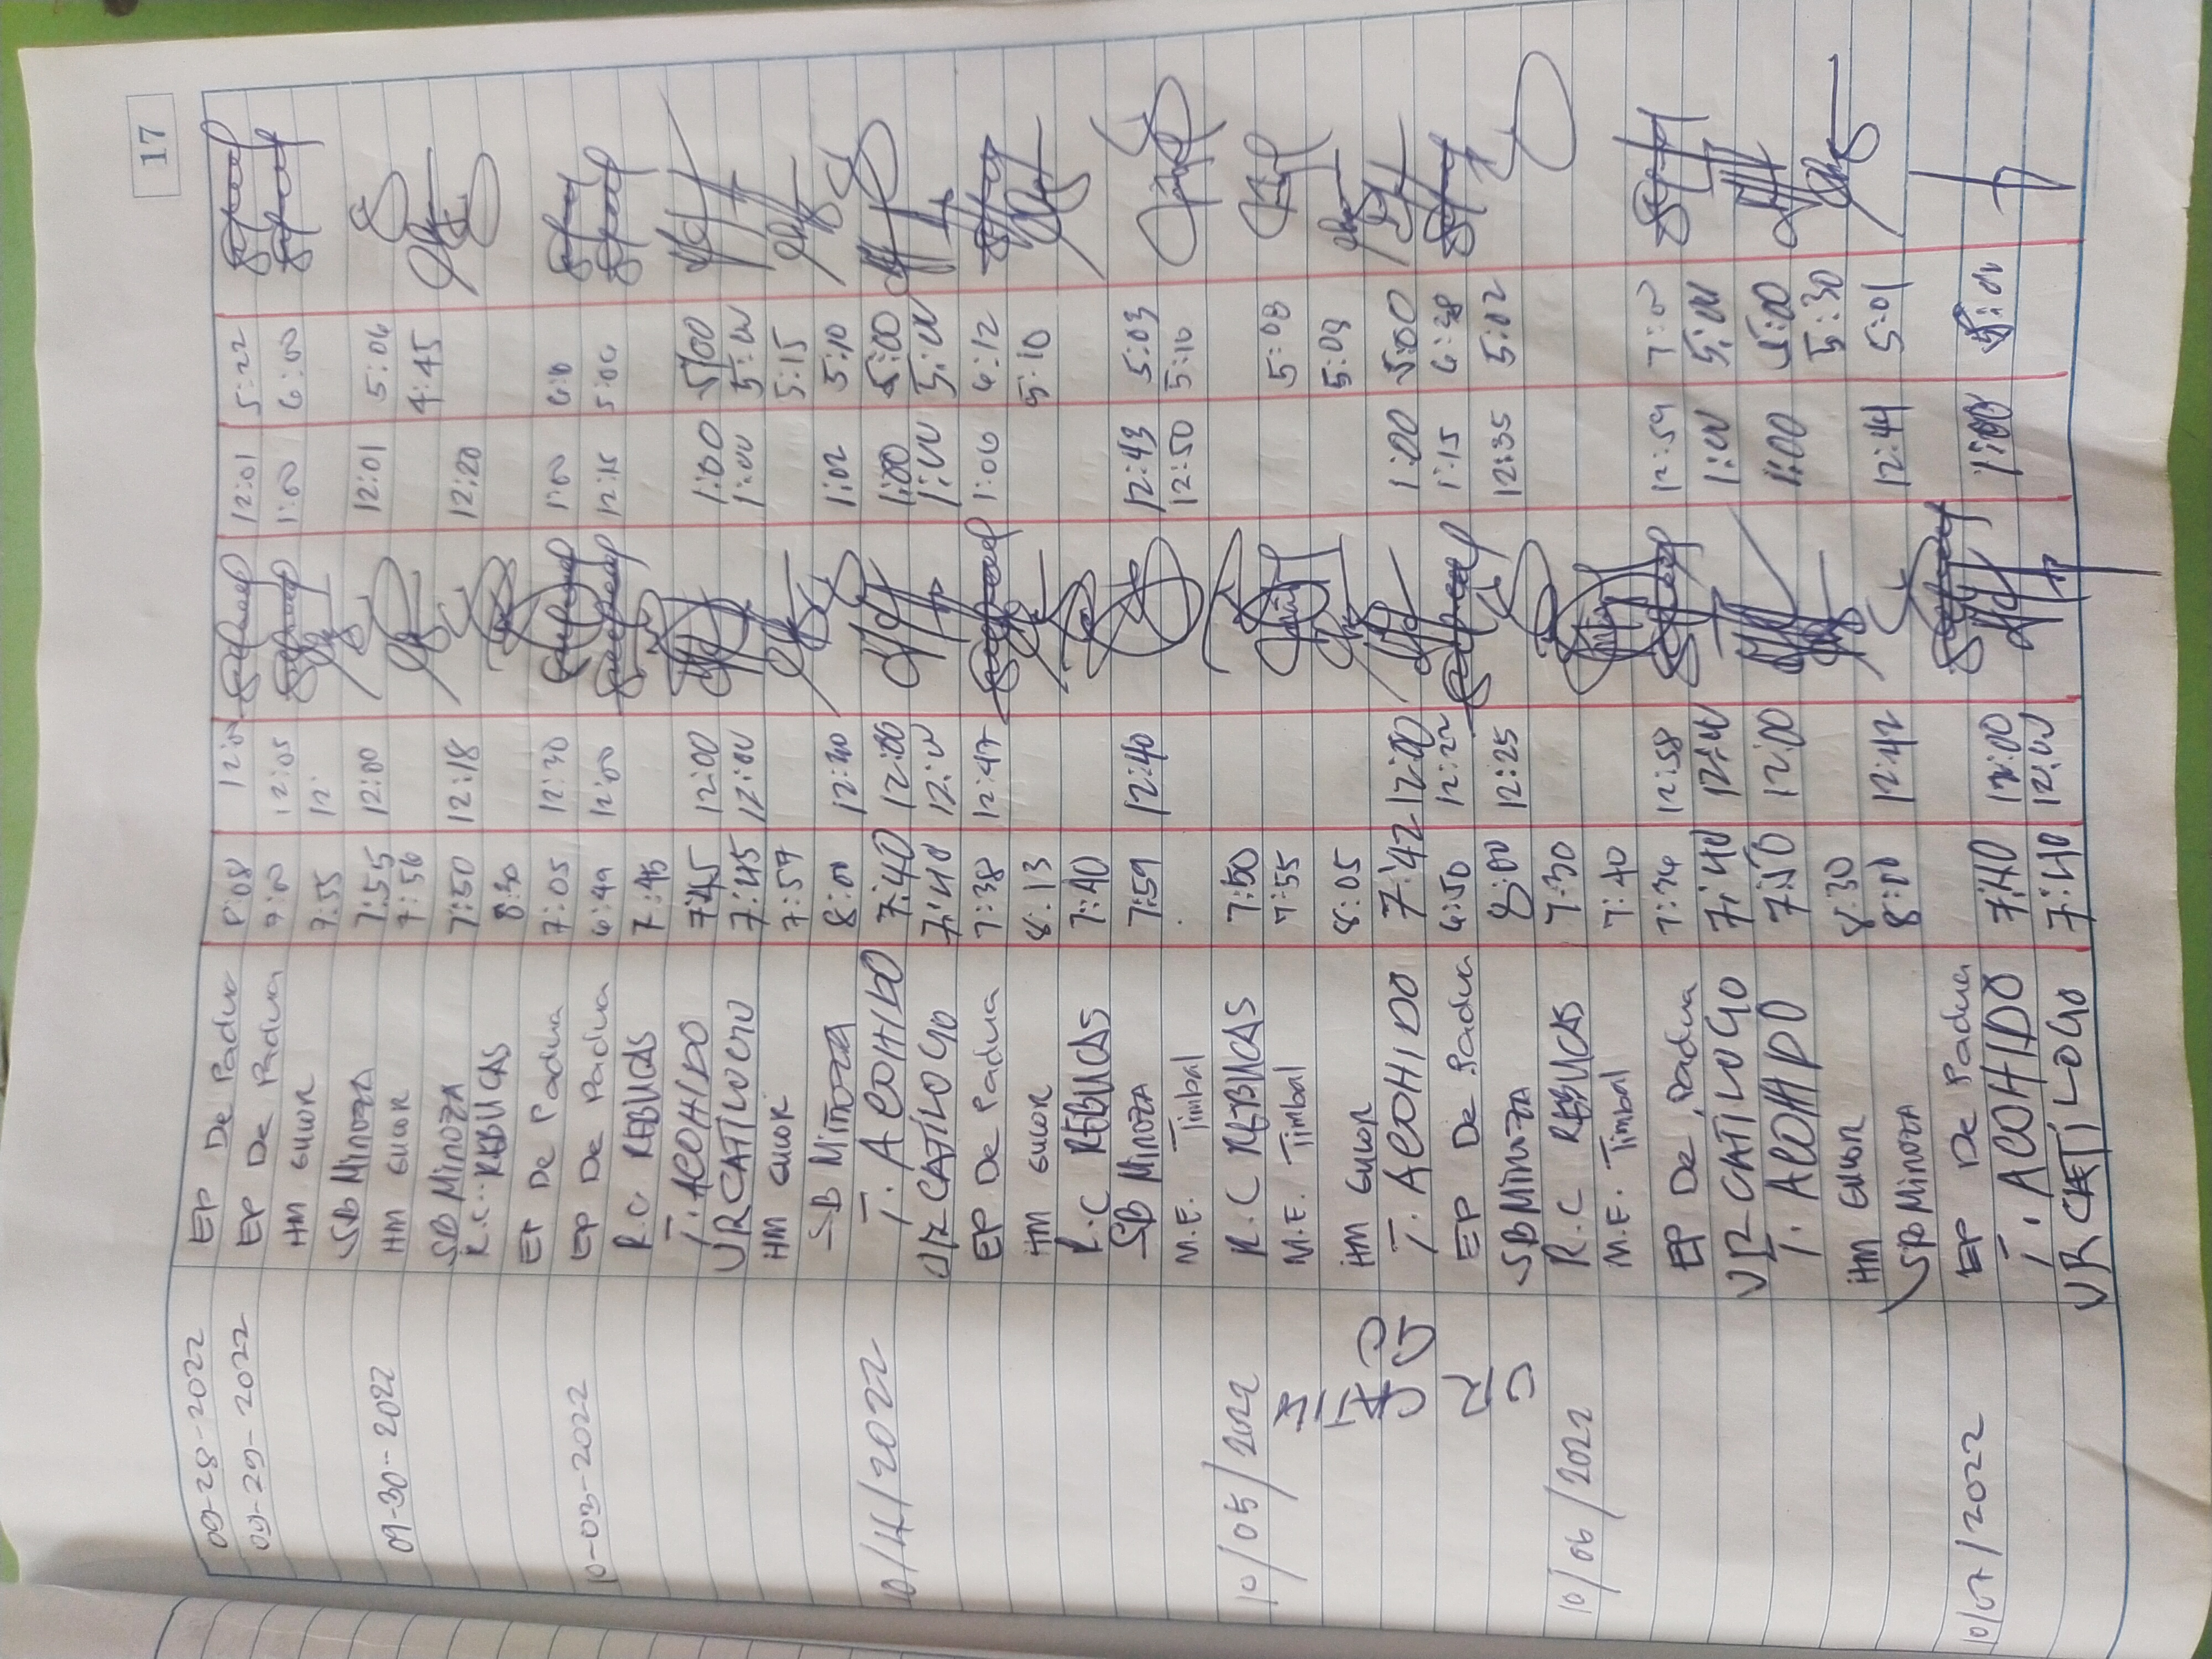 17
09-28-2022 EP De Padua 8:08 12:01 5:22
09-29-2022 EP De Padua 7:00 12:05 1:00 6:00
HM GUWOR 7:55 12:
09-30-2022 SB MINOZA 7:55 12:00 12:01 5:06
HM GUWOR 7:56 4:45
SB MINOZA 7:50 12:18 12:20
R.C. REBUCAS 8:30
EP De Padua 7:05 12:30 1:00
10-03-2022 EP De Padua 6:49 12:00 12:15 5:06
R.C. REBUCAS 7:45
T. ACOHIDO 7:45 12:00 1:00 5:00
VR CATILOGO 7:45 12:00 1:00 5:00
HM GUWOR 7:59 5:15
SB MINOZA 8:00 12:30 1:02 5:10
10/4/2022 T. ACOHIDO 7:40 12:00 1:00 5:00
VR CATILOGO 7:40 12:00 1:00 5:00
EP De Padua 7:38 12:47 1:06 6:12
HM GUWOR 8:13 5:10
R.C REBUCAS 7:40
SB MINOZA 7:59 12:40 12:43 5:03
M.E. Timbal 12:50 5:10
10/05/2022 R.C REBUCAS 7:50
M.E. Timbal 7:55 5:08
HM GUWOR 8:05 5:09
T. ACOHIDO 7:42 12:00 1:00 5:00
EP De Padua 6:50 12:22 1:15 6:38
SB MINOZA 8:00 12:25 12:35 5:02
10/06/2022 R.C REBUCAS 7:30
M.E. Timbal 7:40
EP De Padua 7:36 12:58 12:59 7:00
VR CATILOGO 7:40 12:00 1:00 5:00
T. ACOHIDO 7:50 12:00 1:00 5:00
HM GUWOR 8:30 5:30
SB MINOZA 8:00 12:42 12:44 5:01
10/07/2022 EP De Padua
T. ACOHIDO 7:40 12:00 1:00 5:00
VR CATILOGO 7:40 12:00